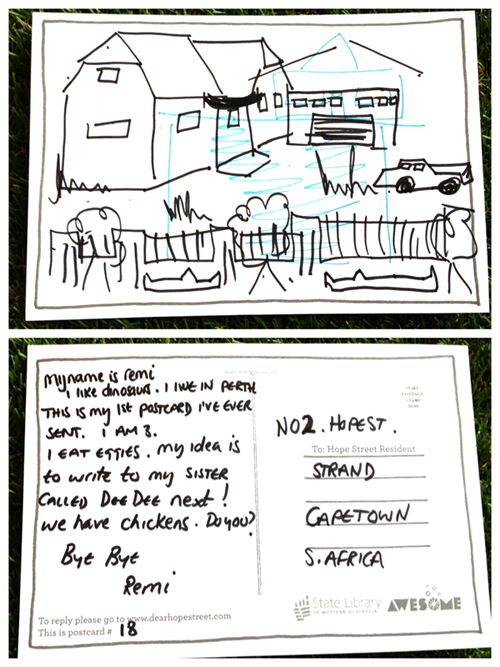 my name is remi
I like dinosaurs. I LIVE IN PERTH
THIS IS MY 1ST POSTCARD I'VE EVER
SENT. I AM 3.
I EAT EGGIES. my IDEA is
to write to my SISTER
CALLED DEE DEE next!
we have chickens. Do you?
Bye Bye
Remi
To reply please go to www.dearhopestreet.com
This is postcard # 18
NO2. HOPE ST.
To: Hope Street Resident
STRAND
CAPETOWN
S. AFRICA
State Library
OF WESTERN AUSTRALIA
AWESOME